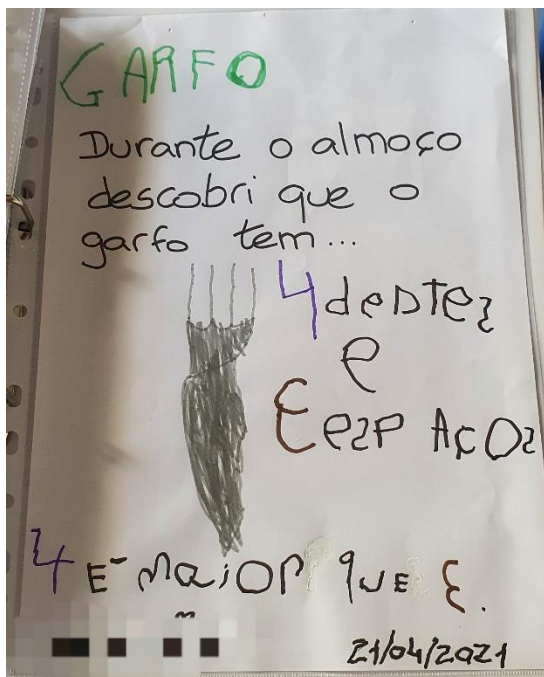 GARFO
Durante o almoço
descobri que o
garfo tem...
4 dentes
e
3 espaços
4 E- maior que 3.
21/04/2021